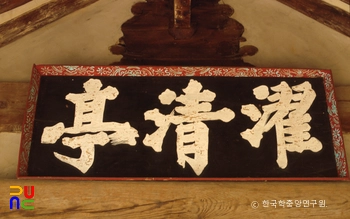 亭清濯
© 한국학중앙연구원